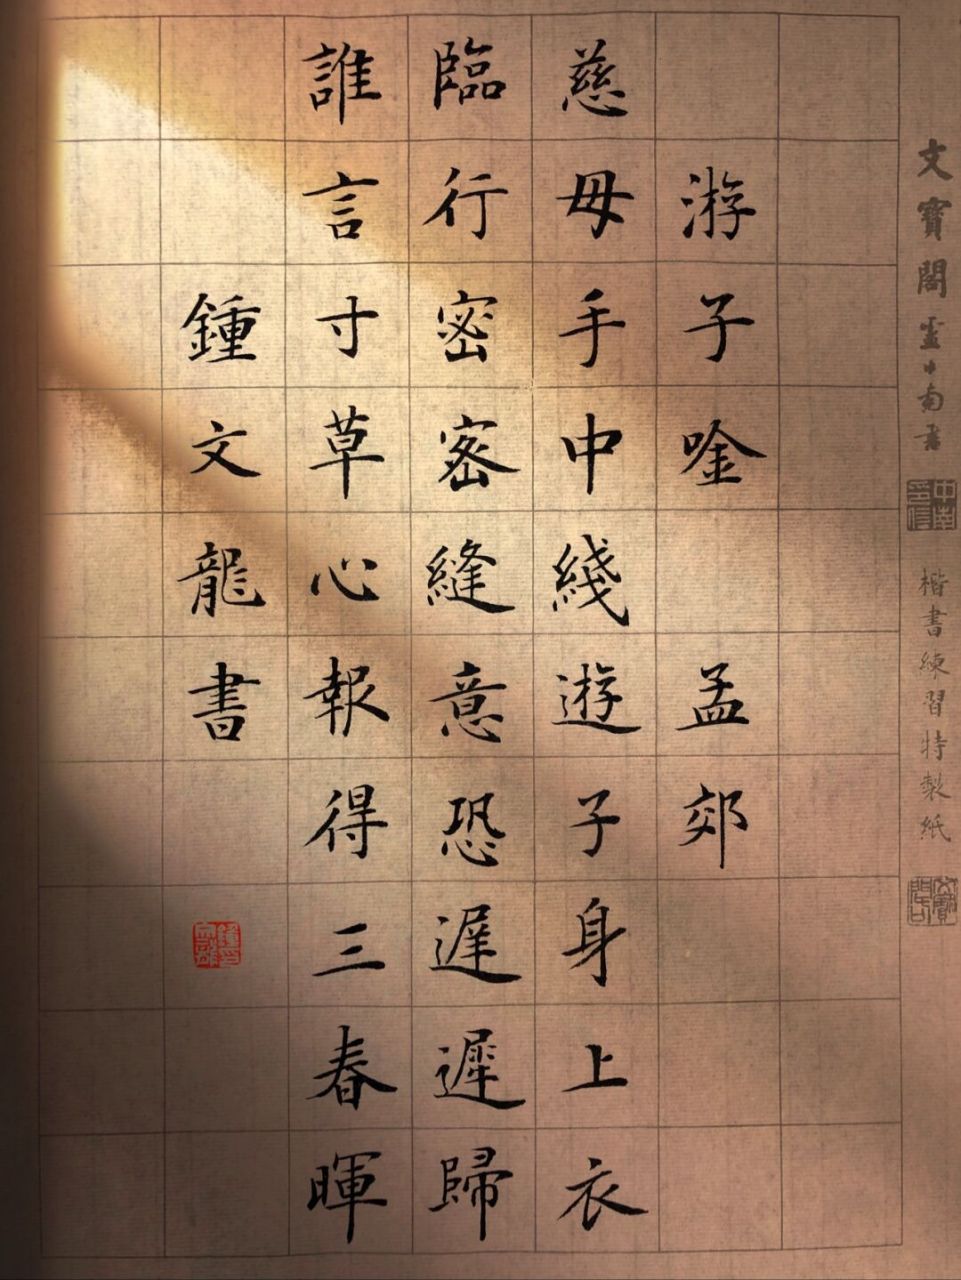 文寶閣 盧中南書
楷書練習特製紙
游子唫 孟郊
慈母手中綫遊子身上衣
臨行密密縫意恐遲遲歸
誰言寸草心報得三春暉
鍾文龍書